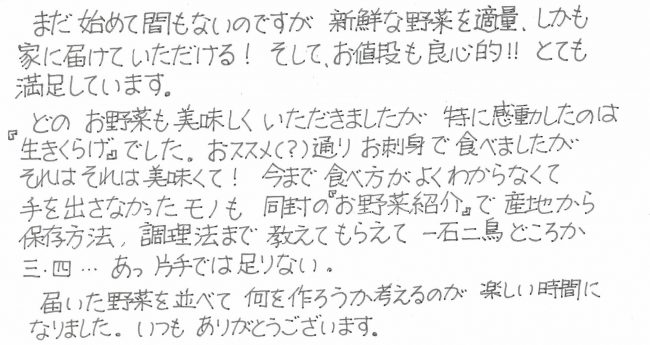 まだ始めて間もないのですが 新鮮な野菜を適量、しかも
家に届けていただける! そして、お値段も良心的!! とても
満足しています。
どの お野菜も美味しく いただきましたが 特に感動したのは
『生きくらげ』でした。おススメ(?)通り お刺身で 食べましたが
それは それは 美味くて! 今まで 食べ方が よくわからなくて
手を出さなかった モノも 同封の『お野菜紹介』で 産地から
保存方法、調理法まで 教えてもらえて 一石二鳥 どころか
三・四… あっ 片手では 足りない。
届いた野菜を並べて 何を作ろうか 考えるのが 楽しい時間に
なりました。いつも ありがとうございます。